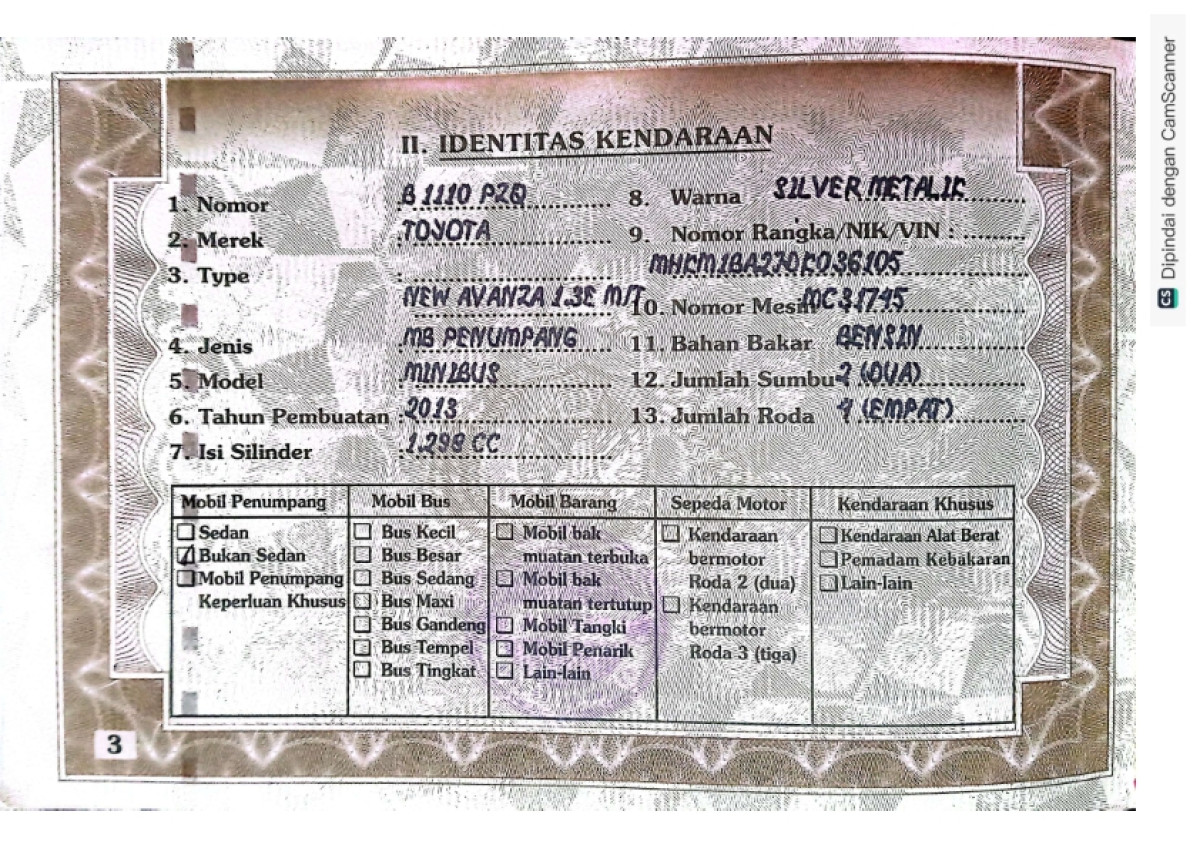 II. IDENTITAS KENDARAAN
1. Nomor : B 1110 PZQ
2. Merek : TOYOTA
3. Type :
NEW AVANZA 1.3E M/T
4. Jenis : MB PENUMPANG
5. Model : MINIBUS
6. Tahun Pembuatan : 2013
7. Isi Silinder : 1.298 CC
8. Warna SILVER METALIK
9. Nomor Rangka/NIK/VIN :
MHKM1BA2JDK036105
10. Nomor Mesin MC31745
11. Bahan Bakar BENSIN
12. Jumlah Sumbu 2 (DUA)
13. Jumlah Roda 4 (EMPAT)
Mobil Penumpang
Sedan
Bukan Sedan
Mobil Penumpang
Keperluan Khusus
Mobil Bus
Bus Kecil
Bus Besar
Bus Sedang
Bus Maxi
Bus Gandeng
Bus Tempel
Bus Tingkat
Mobil Barang
Mobil bak
muatan terbuka
Mobil bak
muatan tertutup
Mobil Tangki
Mobil Penarik
Lain-lain
Sepeda Motor
Kendaraan
bermotor
Roda 2 (dua)
Kendaraan
bermotor
Roda 3 (tiga)
Kendaraan Khusus
Kendaraan Alat Berat
Pemadam Kebakaran
Lain-lain
3
CS Dipindai dengan CamScanner